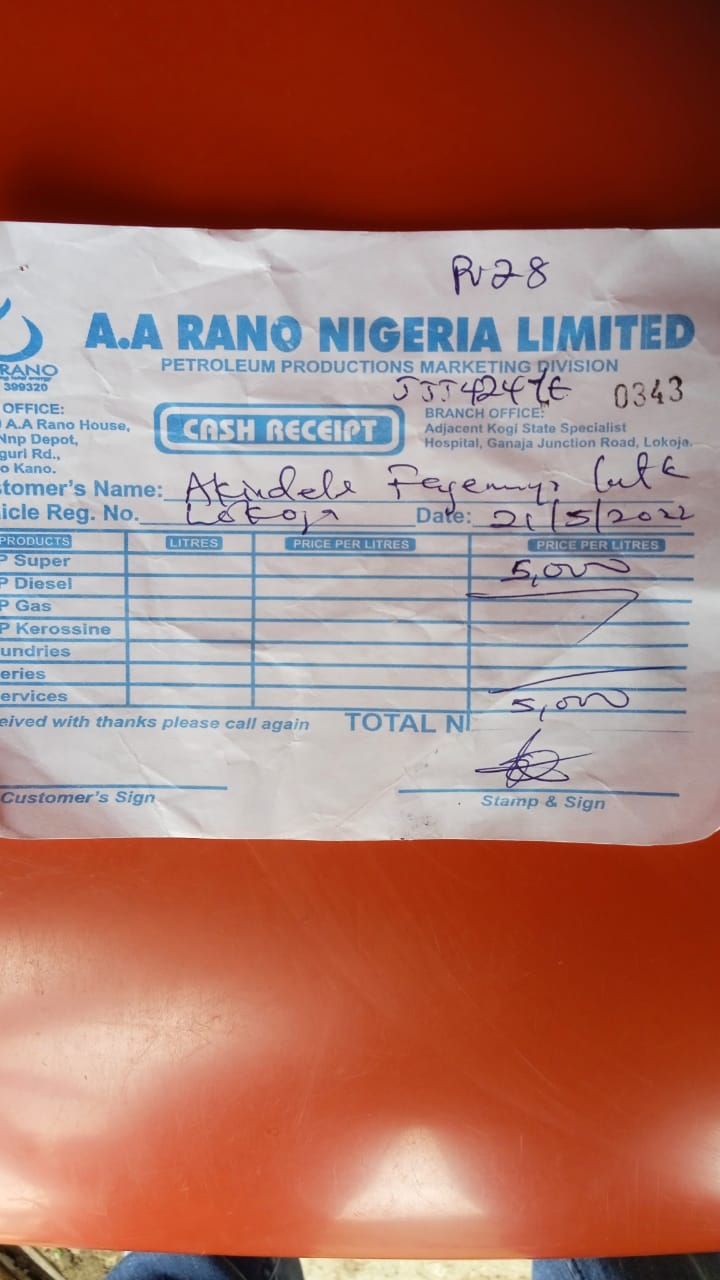 PV28
A.A RANO NIGERIA LIMITED
RANO
PETROLEUM PRODUCTIONS MARKETING DIVISION
399320
0343
OFFICE:
A.A Rano House,
Nnp Depot,
guri Rd.,
o Kano.
CASH RECEIPT
BRANCH OFFICE:
Adjacent Kogi State Specialist
Hospital, Ganaja Junction Road, Lokoja.
stomer's Name: Akindele
icle Reg. No. Lokoja Date: 21/5/2022
PRODUCTS LITRES PRICE PER LITRES PRICE PER LITRES
P Super 5,000
P Diesel
P Gas
P Kerossine
undries
eries
ervices
eived with thanks please call again TOTAL N 5,000
Customer's Sign
Stamp & Sign